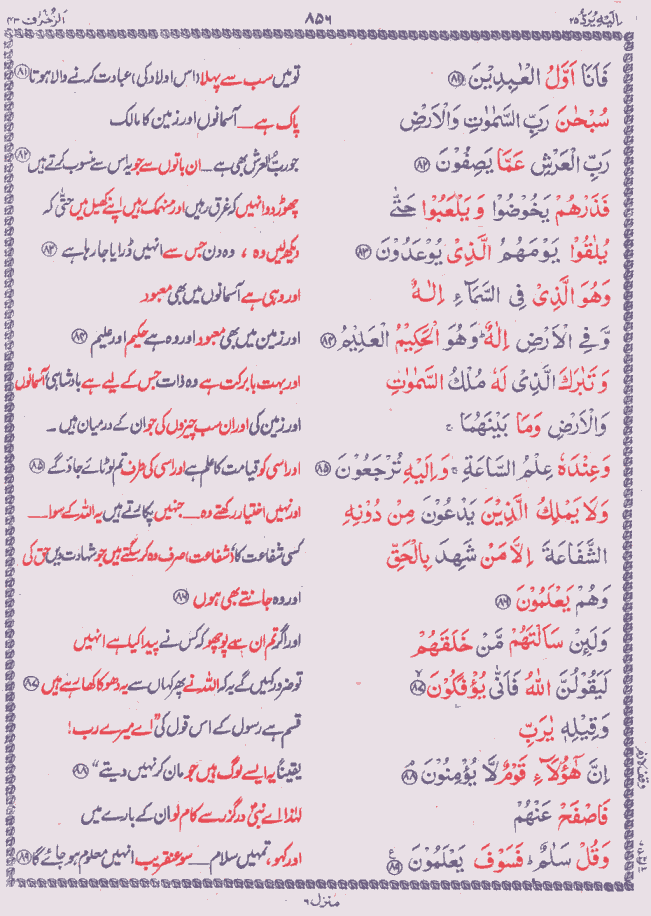 اِلَیْهِ یُرَدُّ ٢٥ ٨٥٦ اَلزُّخْرُف ٤٣
فَاَنَا اَوَّلُ الْعٰبِدِیْنَ ﴿٨١﴾ تو میں سب سے پہلا (اس اولاد کی) عبادت کرنے والا ہوتا ﴿٨١﴾
سُبْحٰنَ رَبِّ السَّمٰوٰتِ وَالْاَرْضِ پاک ہے ــ آسمانوں اور زمین کا مالک
رَبِّ الْعَرْشِ عَمَّا یَصِفُوْنَ ﴿٨٢﴾ جو ربُّ العرش بھی ہے ــ ان باتوں سے جو یہ اس سے منسوب کرتے ہیں ﴿٨٢﴾
فَذَرْهُمْ یَخُوْضُوْا وَ یَلْعَبُوْا حَتّٰی چھوڑ دو انہیں کہ غرق رہیں اور منہمک رہیں اپنے کھیل میں حتّٰی کہ
یُلٰقُوْا یَوْمَهُمُ الَّذِیْ یُوْعَدُوْنَ ﴿٨٣﴾ دیکھ لیں وہ ، وہ دن جس سے انہیں ڈرایا جا رہا ہے ﴿٨٣﴾
وَهُوَ الَّذِیْ فِی السَّمَآءِ اِلٰهٌ اور وہی ہے آسمانوں میں بھی معبود
وَّفِی الْاَرْضِ اِلٰهٌ ؕ وَهُوَ الْحَكِیْمُ الْعَلِیْمُ ﴿٨٤﴾ اور زمین میں بھی معبود اور وہ ہے حکیم اور علیم ﴿٨٤﴾
وَ تَبٰرَكَ الَّذِیْ لَهٗ مُلْكُ السَّمٰوٰتِ اور بہت با برکت ہے وہ ذات جس کے لیے ہے بادشاہی آسمانوں
وَالْاَرْضِ وَمَا بَیْنَهُمَا ۚ اور زمین کی اور ان سب چیزوں کی جو ان کے درمیان ہیں ۔
وَعِنْدَهٗ عِلْمُ السَّاعَةِ ۚ وَ اِلَیْهِ تُرْجَعُوْنَ ﴿٨٥﴾ اور اسی کو قیامت کا علم ہے اور اسی کی طرف تم لوٹائے جاؤ گے ﴿٨٥﴾
وَلَا یَمْلِكُ الَّذِیْنَ یَدْعُوْنَ مِنْ دُوْنِهِ اور نہیں اختیار رکھتے وہ ــ جنہیں پکارتے ہیں یہ اللہ کے سوا ــ
الشَّفَاعَةَ اِلَّا مَنْ شَهِدَ بِالْحَقِّ کسی شفاعت کا (شفاعت) صرف وہ کر سکتے ہیں جو شہادت دیں حق کی
وَهُمْ یَعْلَمُوْنَ ﴿٨٦﴾ اور وہ جانتے بھی ہوں ﴿٨٦﴾
وَلَىِٕنْ سَاَلْتَهُمْ مَّنْ خَلَقَهُمْ اور اگر تم ان سے پوچھو کہ کس نے پیدا کیا ہے انہیں
لَیَقُوْلُنَّ اللّٰهُ فَاَنّٰی یُؤْفَكُوْنَ ﴿٨٧﴾ تو ضرور کہیں گے یہ کہ اللہ نے پھر کہاں سے یہ دھوکا کھا رہے ہیں ﴿٨٧﴾
وَقِیْلِهٖ یٰرَبِّ قسم ہے رسول کے اس قول کی "اے میرے رب!
اِنَّ هٰۤؤُلَآءِ قَوْمٌ لَّا یُؤْمِنُوْنَ ﴿٨٨﴾ یقیناً یہ ایسے لوگ ہیں جو مان کر نہیں دیتے" ﴿٨٨﴾
فَاصْفَحْ عَنْهُمْ لہٰذا اے نبیؐ درگزر سے کام لو ان کے بارے میں
وَقُلْ سَلٰمٌ ؕ فَسَوْفَ یَعْلَمُوْنَ ﴿٨٩﴾ اور کہو، تمہیں سلام ــ سو عنقریب انہیں معلوم ہو جائے گا ﴿٨٩﴾
منزل ٦